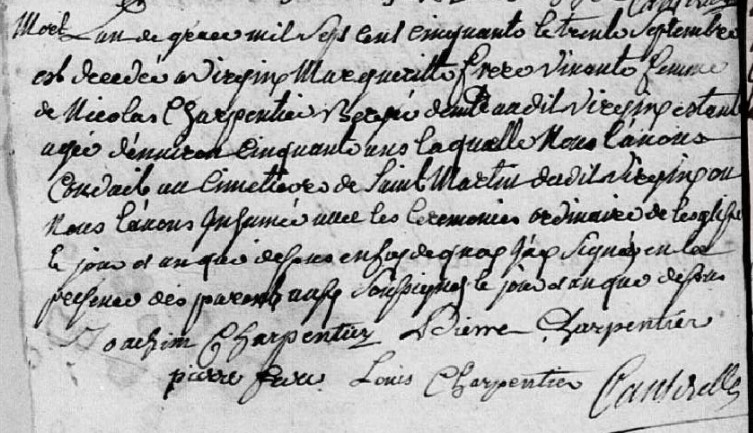 Mort L'an de grace mil sept cent cinquante le trente Septembre
est decedée a Virgin Margueritte frere vivante femme
de Nicolas Charpentier Berger demt audit Virgin estant
agée d'environ cinquante ans laquelle Nous l'avons
Conduite au Cimetiere de Saint Martin dudit Virgin ou
Nous l'avons Inhumée avec les Ceremonies ordinaire de l'eglise
le jour et an que dessus en foy de quoy J'ay Signé en la
presence des parents aussy Soussignes le jour et an que dessus
Joachim Charpentier Pierre Charpentier
pierre frere Louis Charpentier Canterelle